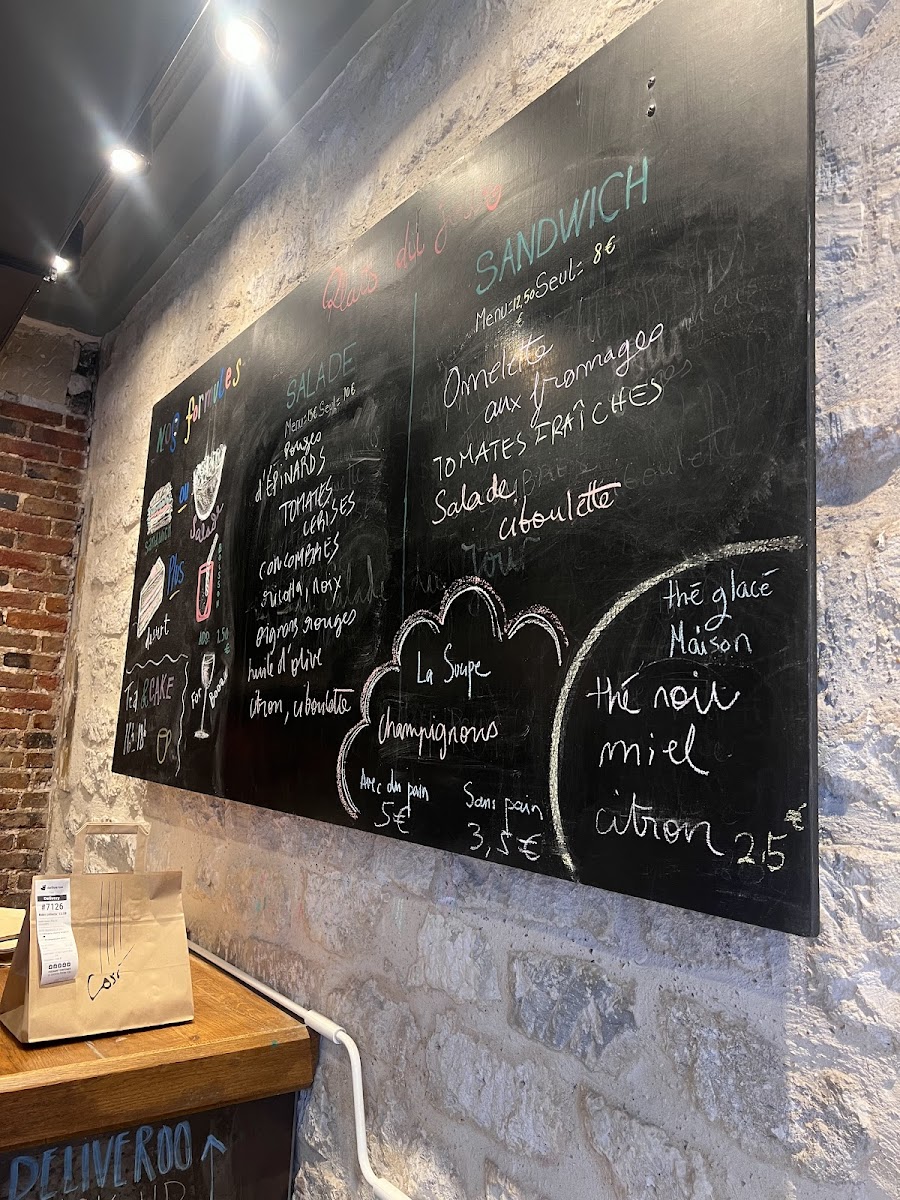 Plats du jour
Nos formules
SANDWICH
ou
Salade
Plus
dessert
ADD 1.50
For
TEA & CAKE
16h 18h
SALADE
Menu= Seul= 10€
Pouges
d'ÉPINARDS
TOMATES
CERISES
CONCOMBRES
noix
oignons rouges
huile d'olive
citron, ciboulette
SANDWICH
Menu=12,50 Seul= 8€
€
Omelette
aux fromages
TOMATES FRAÎCHES
Salade,
ciboulette
La Soupe
champignons
Avec du pain
5€
Sans pain
3,5€
thé glacé
Maison
thé noir
miel
citron 2,5€
Delivery
#7126
Cosi
DELIVEROO